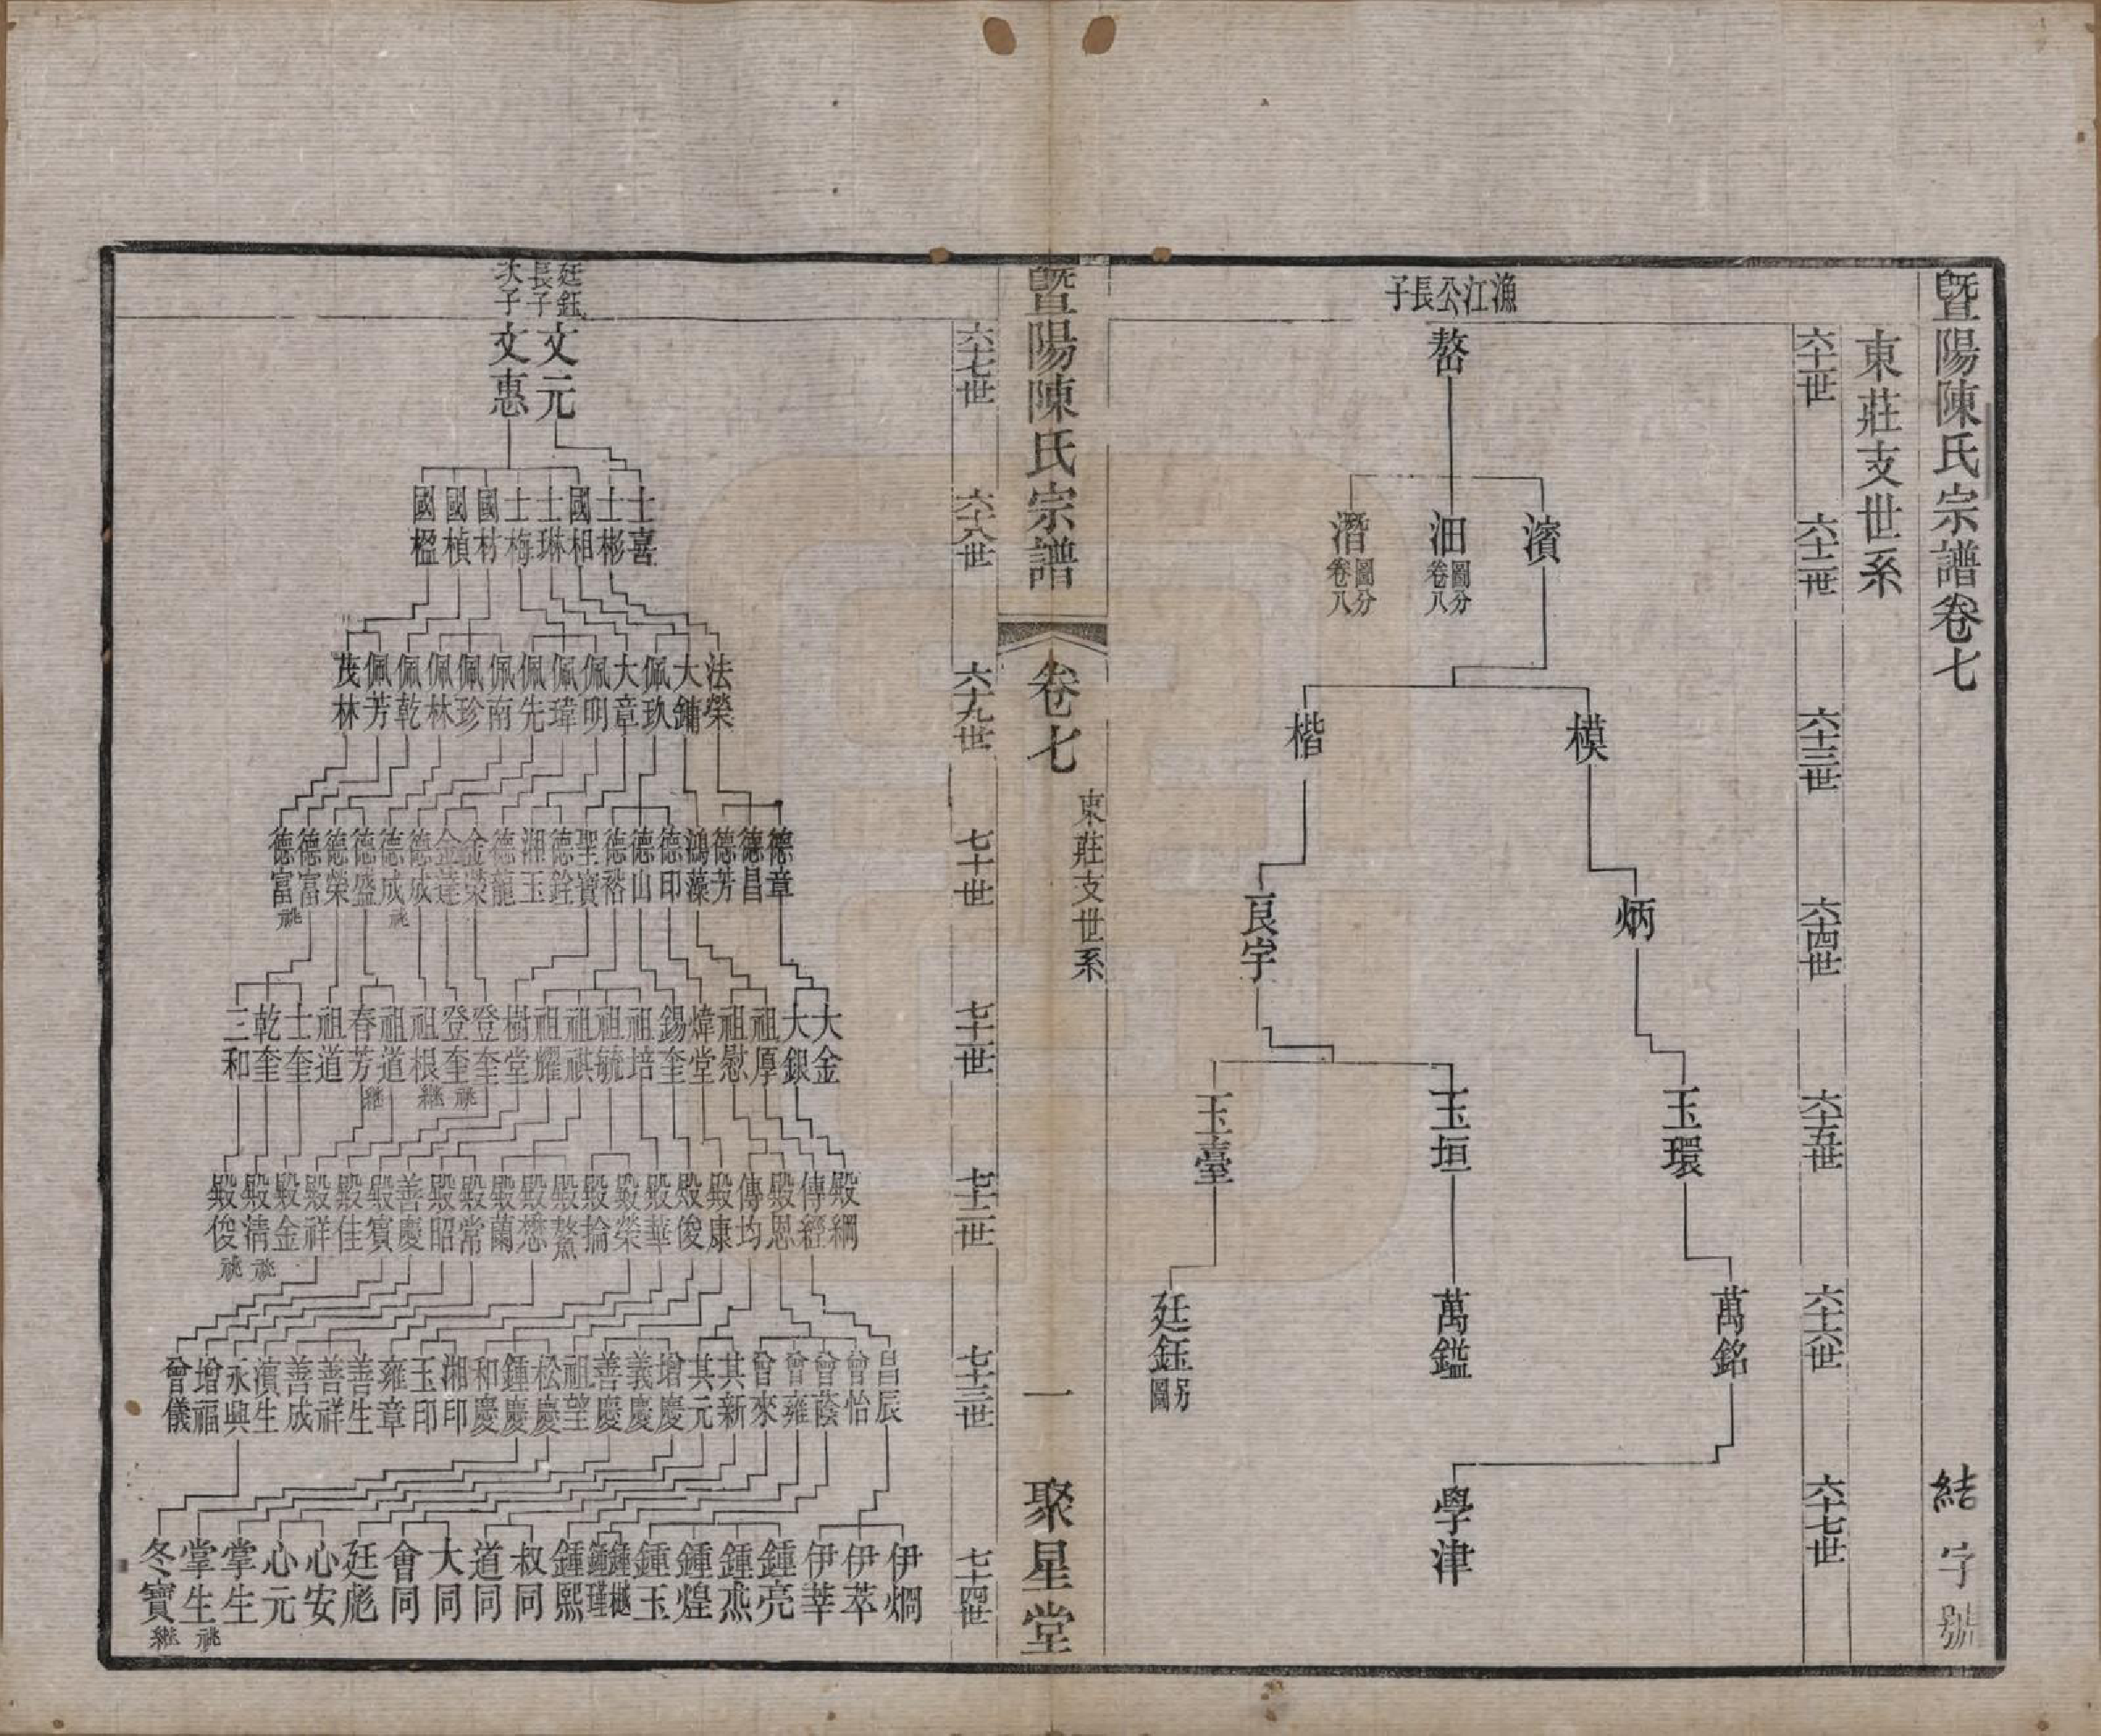 暨陽陳氏宗譜卷七
結字號
東莊支世系
六十一世
六十二世
六十三世
六十四世
六十五世
六十六世
六十七世
漁江公長子
嶅
濱
沺 圖分卷八
潛 圖分卷八
模
楷
炳
良宇
玉環
玉垣
玉臺
萬銘
萬鑑
廷鈺 另圖
學津
暨陽陳氏宗譜
卷七
東莊支世系
一
聚星堂
六十七世
六十八世
六十九世
七十世
七十一世
七十二世
七十三世
七十四世
廷鈺長子 文元
次子 文惠
士喜
士彬
國相
士琳
士梅
國材
國楨
國楹
法榮
大鏞
佩玖
大章
佩明
佩瑋
佩先
佩南
佩珍
佩林
佩乾
佩芳
茂林
德章
德昌
德芳
鴻藻
德印
德山
德裕
聖寶
德銓
湘玉
德龍
金榮
金達
德成
德成 祧
德盛
德榮
德富
德富 祧
大金
大銀
祖厚
祖慰
煒堂
錫奎
祖培
祖毓
祖祺
祖耀
樹堂
登奎
登奎 祧
祖根 繼
祖道
春芳 繼
祖道
士奎
乾奎
三和
殿綱
傳經
殿恩
傳均
殿康
殿俊
殿華
殿榮
殿掄
殿鰲
殿懋
殿蘭
殿常
殿昭
善慶
殿寶
殿佳
殿祥
殿金
殿清 祧
殿俊 祧
昌辰
曾怡
曾蔭
曾雍
曾來
其新
其元
增慶
義慶
善慶
祖望
松慶
鍾慶
和慶
湘印
玉印
雍章
善生
善祥
善成
濱生
永興
增福
曾儀
伊炯
伊萃
伊莘
鍾亮
鍾燕
鍾煌
鍾玉
鍾樾
鍾瑾
鍾熙
叔同
道同
大同
會同
廷彪
心安
心元
掌生
掌生 祧
冬寶 繼